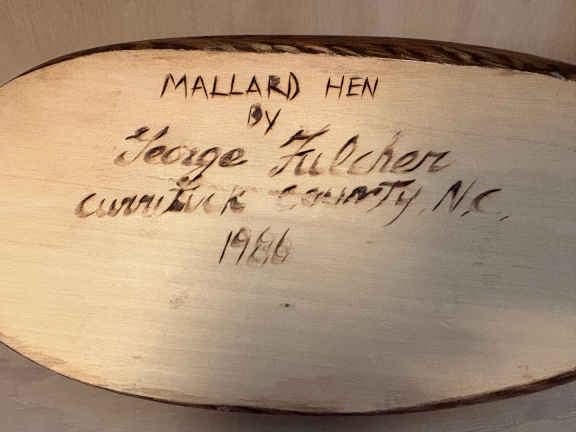 MALLARD HEN
BY
George Fulcher
Currituck County, N.C.
1986